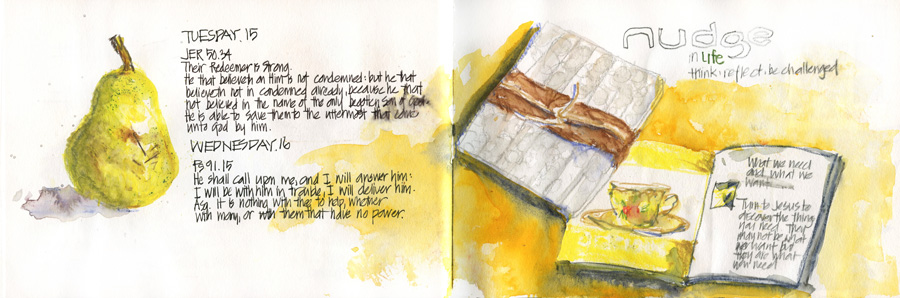 TUESDAY. 15
JER 50.34
Their Redeemer is Strong.
He that believeth on Him is not condemned: but he that
believeth not is condemned already, because he that
not believed in the name of the only begotten son of God.
He is able to save them to the uttermost that come
unto God by him.
WEDNESDAY. 16
PS 91.15
He shall call upon me, and I will answer him:
I will be with him in trouble, I will deliver him.
it is nothing with thee to help, whether
with many, or with them that have no power.
nudge
in Life
think: reflect: be challenged
What we need
and what we
want
Turn to Jesus to
discover the thing
you need. That
may not be what
you want but
they are what
you need